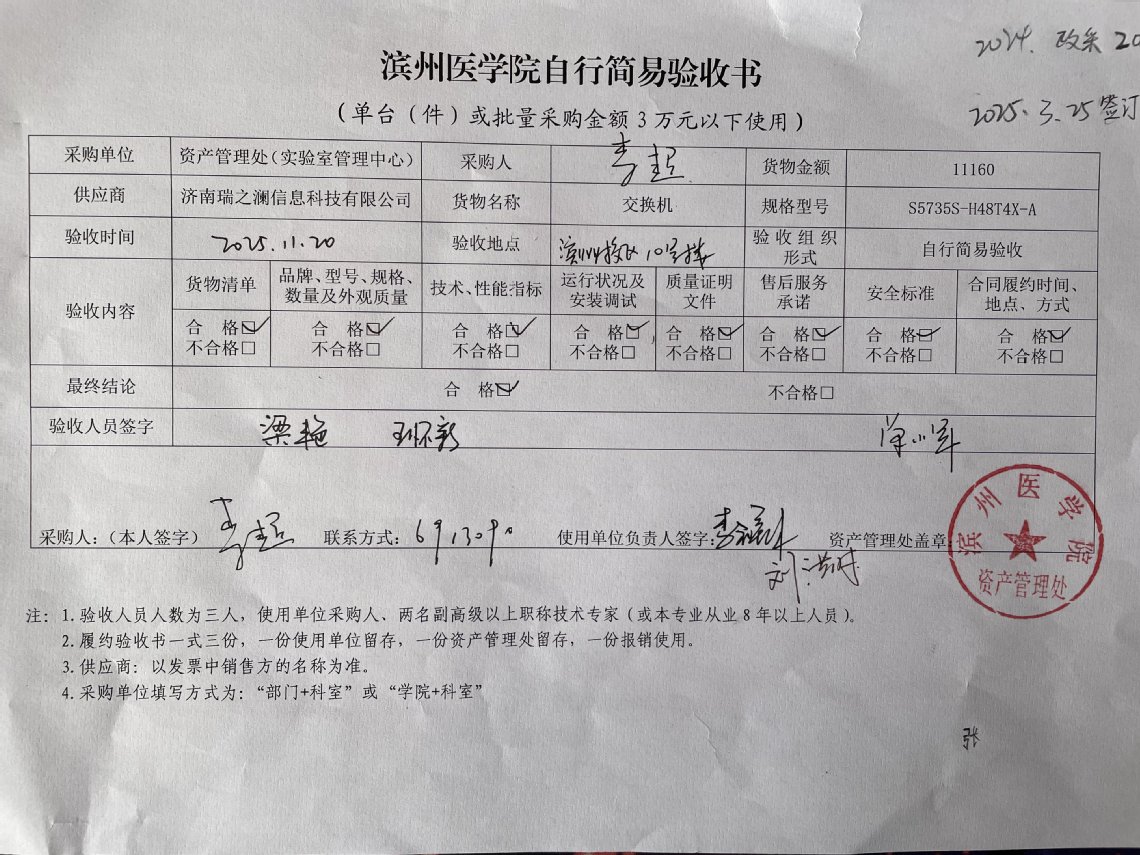 2024. 政采 20
滨州医学院自行简易验收书
2025.3.25签订
(单台(件)或批量采购金额3万元以下使用)
采购单位 资产管理处(实验室管理中心) 采购人 李超 货物金额 11160
供应商 济南瑞之澜信息科技有限公司 货物名称 交换机 规格型号 S5735S-H48T4X-A
验收时间 2025.11.20 验收地点 滨州校区10号楼 验收组织形式 自行简易验收
验收内容 货物清单 品牌、型号、规格、数量及外观质量 技术、性能指标 运行状况及安装调试 质量证明文件 售后服务承诺 安全标准 合同履约时间、地点、方式
合 格☑ 合 格☑ 合 格☑ 合 格☑ 合 格☑ 合 格☑ 合 格☑ 合 格☑
不合格☐ 不合格☐ 不合格☐ 不合格☐ 不合格☐ 不合格☐ 不合格☐ 不合格☐
最终结论 合 格☑ 不合格☐
验收人员签字 梁艳
采购人:(本人签字) 李超 联系方式: 6913090 使用单位负责人签字: 资产管理处盖章:
滨州医学院
资产管理处
注: 1.验收人员人数为三人,使用单位采购人、两名副高级以上职称技术专家(或本专业从业8年以上人员)。
2.履约验收书一式三份,一份使用单位留存,一份资产管理处留存,一份报销使用。
3.供应商:以发票中销售方的名称为准。
4.采购单位填写方式为:“部门+科室”或“学院+科室”
张